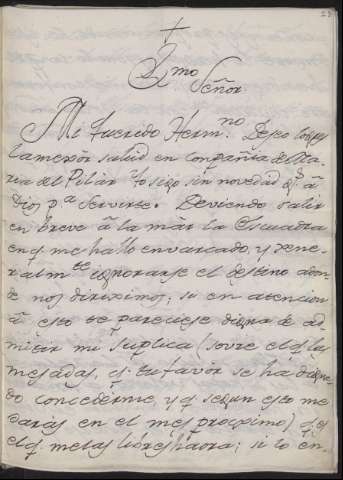 +
Exmo
Señor
Mi querido Hermno. Deseo logres
la mexor salud en compañia de Ma-
ria del Pilar Yo sigo sin novedad gs. â
Dios pa. servirte. Deviendo salir
en breve â la mâr la Escuadra
en q. me hallo envarcado, y xene-
ralmte. ignorarse el destino adon-
de nos diriximos; si en atencion
â esto te pareciese digna de ad-
mitir mi suplica (sovre el q. las
mesadas, q. tu favor se ha digna-
do concederme, y q. segun esto me
darás en el mes proximo)
el q. me las libres haora; si lo en-